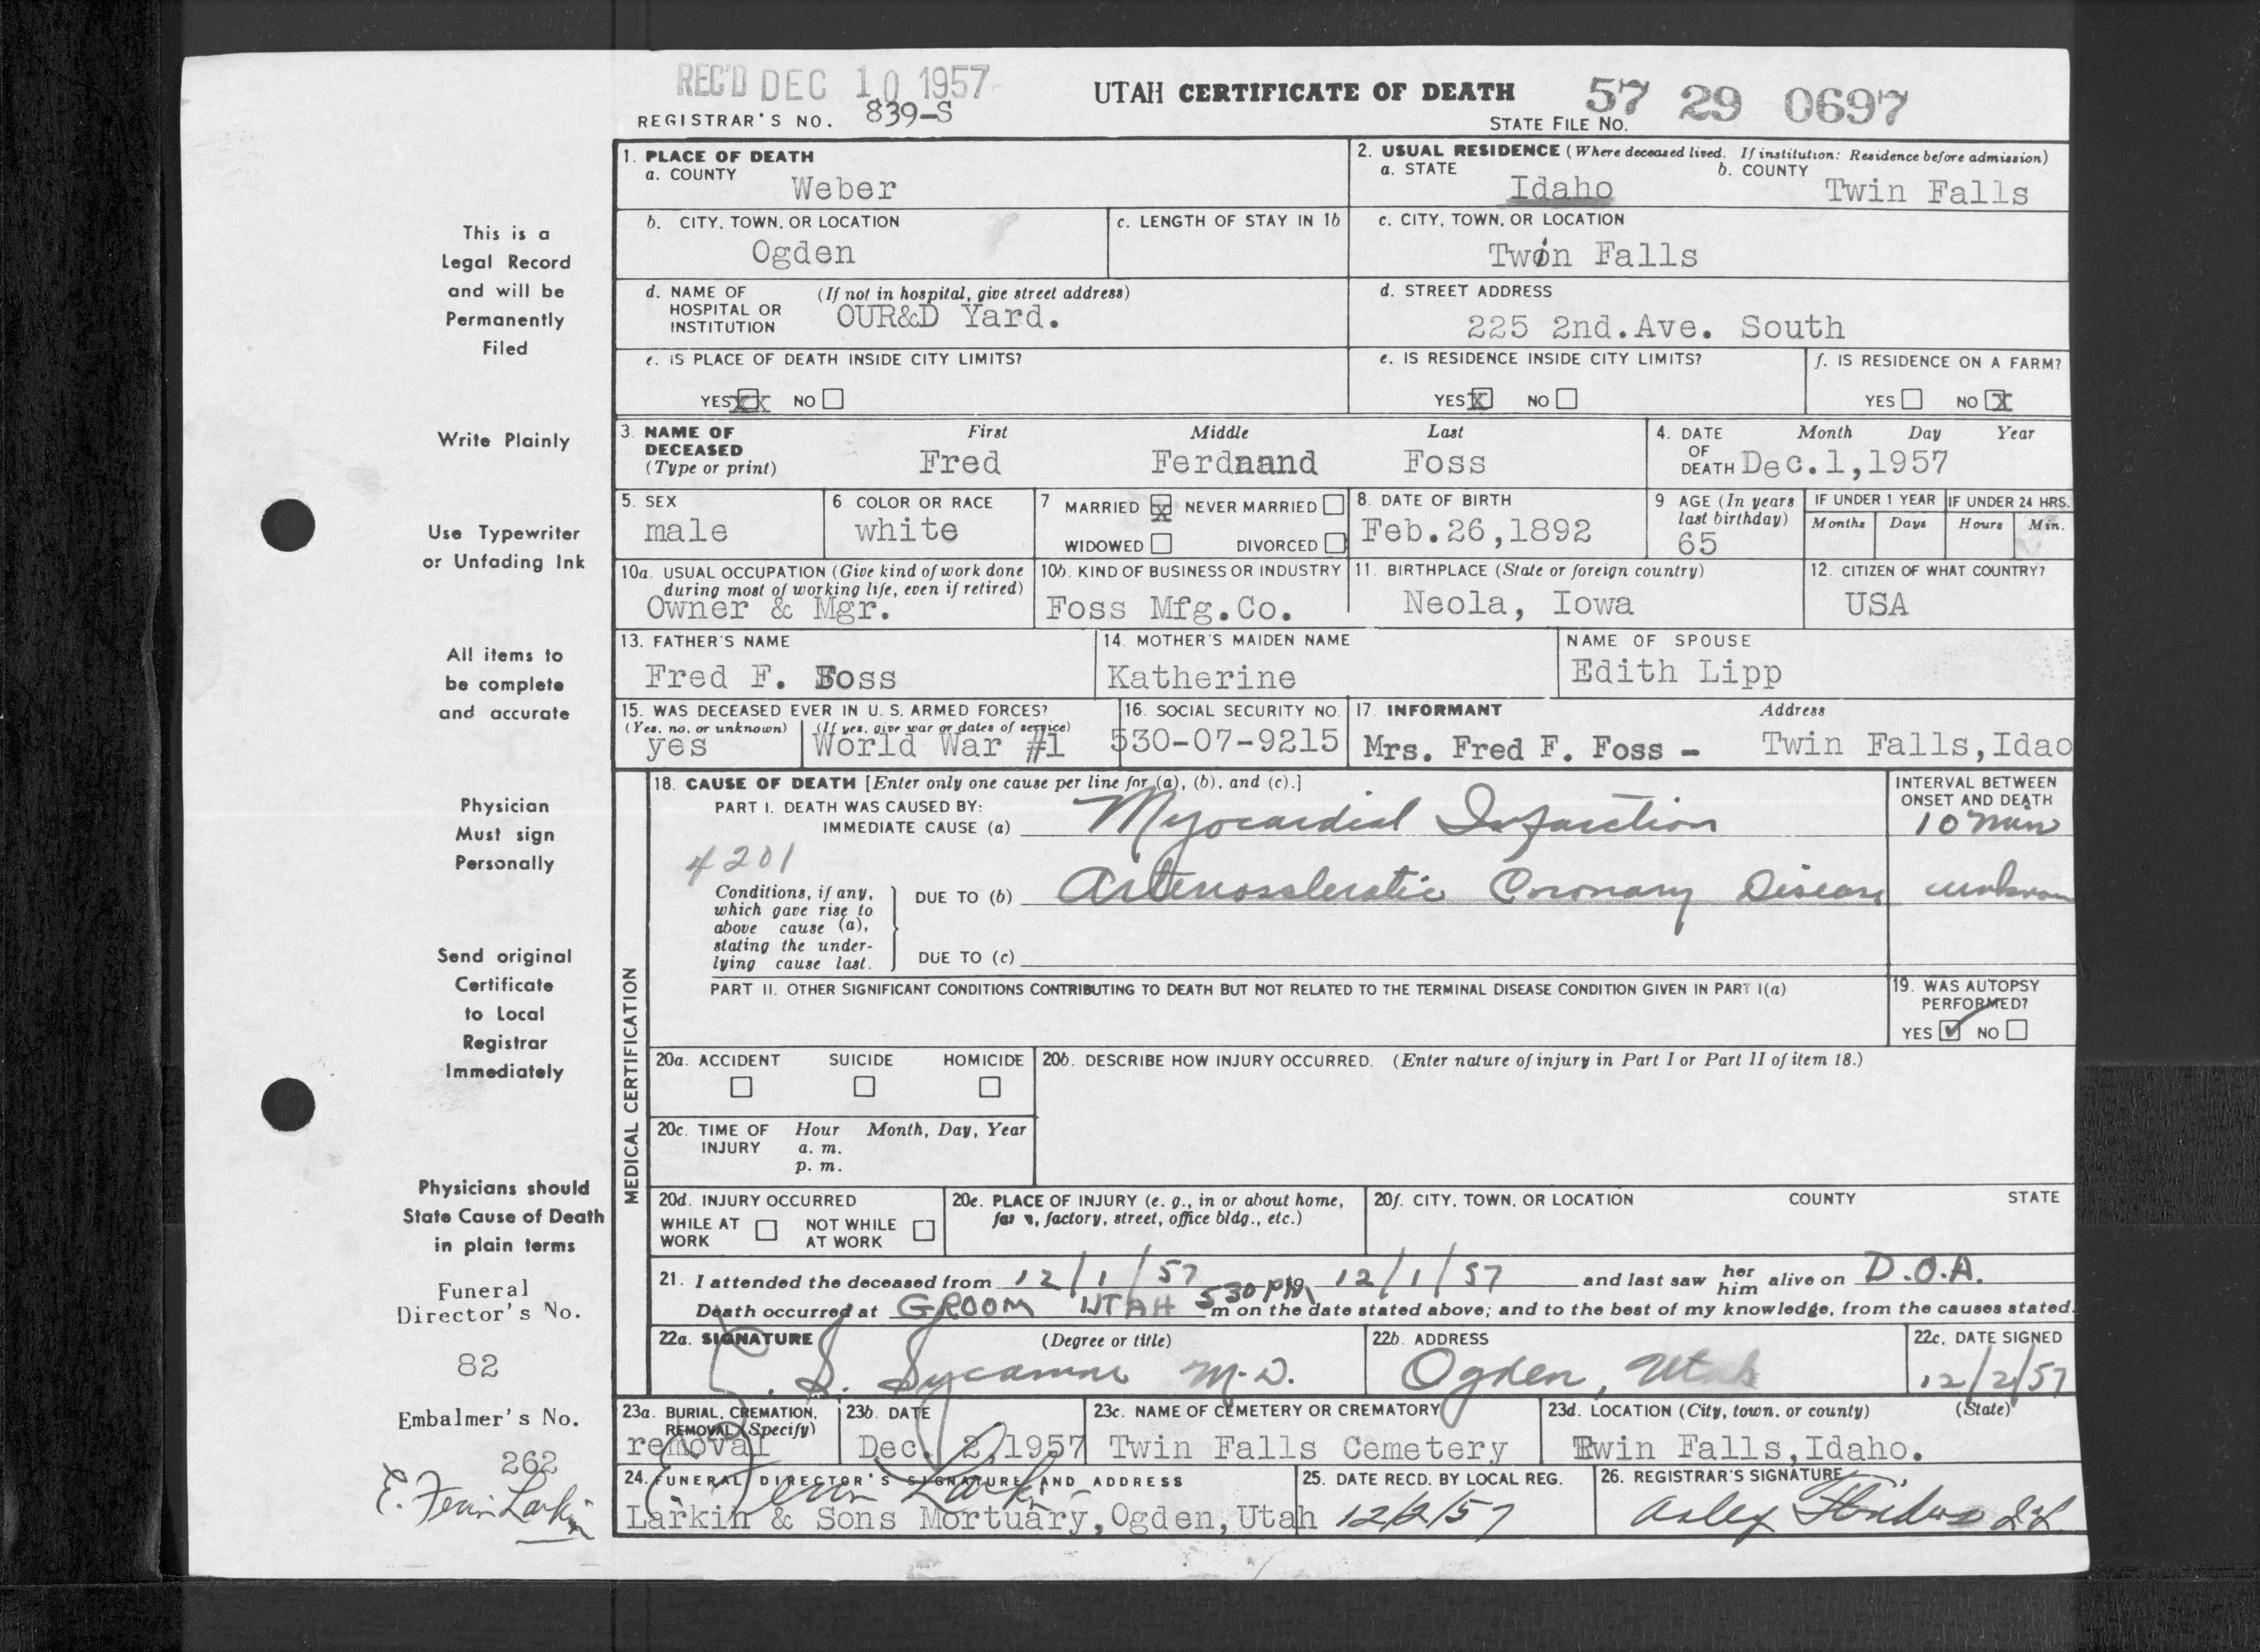 REC'D DEC 10 1957
UTAH CERTIFICATE OF DEATH
57 29 0697
REGISTRAR'S NO. 839-S
STATE FILE NO.
This is a
Legal Record
and will be
Permanently
Filed
Write Plainly
Use Typewriter
or Unfading Ink
All items to
be complete
and accurate
Physician
Must sign
Personally
Send original
Certificate
to Local
Registrar
Immediately
Physicians should
State Cause of Death
in plain terms
Funeral
Director's No.
82
Embalmer's No.
262
1. PLACE OF DEATH
a. COUNTY
Weber
2. USUAL RESIDENCE (Where deceased lived. If institution: Residence before admission)
a. STATE Idaho
b. COUNTY Twin Falls
b. CITY, TOWN, OR LOCATION
Ogden
c. LENGTH OF STAY IN 1b
c. CITY, TOWN, OR LOCATION
Twin Falls
d. NAME OF HOSPITAL OR INSTITUTION (If not in hospital, give street address)
OUR&D Yard.
d. STREET ADDRESS
225 2nd.Ave. South
e. IS PLACE OF DEATH INSIDE CITY LIMITS?
YES XX NO
e. IS RESIDENCE INSIDE CITY LIMITS?
YES X NO
f. IS RESIDENCE ON A FARM?
YES NO X
3. NAME OF DECEASED (Type or print)
First Middle Last
Fred Ferdnand Foss
4. DATE OF DEATH Month Day Year
Dec.1,1957
5. SEX
male
6 COLOR OR RACE
white
7 MARRIED X NEVER MARRIED
WIDOWED DIVORCED
8. DATE OF BIRTH
Feb.26,1892
9 AGE (In years last birthday)
65
IF UNDER 1 YEAR
Months Days
IF UNDER 24 HRS.
Hours Min.
10a. USUAL OCCUPATION (Give kind of work done during most of working life, even if retired)
Owner & Mgr.
10b. KIND OF BUSINESS OR INDUSTRY
Foss Mfg.Co.
11. BIRTHPLACE (State or foreign country)
Neola, Iowa
12. CITIZEN OF WHAT COUNTRY?
USA
13. FATHER'S NAME
Fred F. Foss
14. MOTHER'S MAIDEN NAME
Katherine
NAME OF SPOUSE
Edith Lipp
15. WAS DECEASED EVER IN U. S. ARMED FORCES?
(Yes, no, or unknown) (If yes, give war or dates of service)
yes World War #1
16. SOCIAL SECURITY NO.
530-07-9215
17. INFORMANT Address
Mrs. Fred F. Foss - Twin Falls,Idao
MEDICAL CERTIFICATION
18. CAUSE OF DEATH [Enter only one cause per line for (a), (b), and (c).]
INTERVAL BETWEEN ONSET AND DEATH
PART I. DEATH WAS CAUSED BY:
IMMEDIATE CAUSE (a) Myocardial Infarction 10 min
4201
Conditions, if any, which gave rise to above cause (a), stating the underlying cause last.
DUE TO (b) Arteriosclerotic Coronary Disease unknown
DUE TO (c)
PART II. OTHER SIGNIFICANT CONDITIONS CONTRIBUTING TO DEATH BUT NOT RELATED TO THE TERMINAL DISEASE CONDITION GIVEN IN PART I(a)
19. WAS AUTOPSY PERFORMED?
YES ✓ NO
20a. ACCIDENT SUICIDE HOMICIDE
20b. DESCRIBE HOW INJURY OCCURRED. (Enter nature of injury in Part I or Part II of item 18.)
20c. TIME OF INJURY Hour Month, Day, Year
a. m.
p. m.
20d. INJURY OCCURRED
WHILE AT WORK NOT WHILE AT WORK
20e. PLACE OF INJURY (e. g., in or about home, farm, factory, street, office bldg., etc.)
20f. CITY, TOWN, OR LOCATION COUNTY STATE
21. I attended the deceased from 12/1/57 12/1/57 and last saw her him alive on D.O.A.
Death occurred at GROOM UTAH 530 PM m on the date stated above; and to the best of my knowledge, from the causes stated.
22a. SIGNATURE (Degree or title)
M.D.
22b. ADDRESS
Ogden, Utah
22c. DATE SIGNED
12/2/57
23a. BURIAL, CREMATION, REMOVAL (Specify)
removal
23b. DATE
Dec. 2,1957
23c. NAME OF CEMETERY OR CREMATORY
Twin Falls Cemetery
23d. LOCATION (City, town, or county) (State)
Twin Falls,Idaho.
24. FUNERAL DIRECTOR'S SIGNATURE AND ADDRESS
Larkin & Sons Mortuary,Ogden,Utah
25. DATE RECD. BY LOCAL REG.
12/2/57
26. REGISTRAR'S SIGNATURE